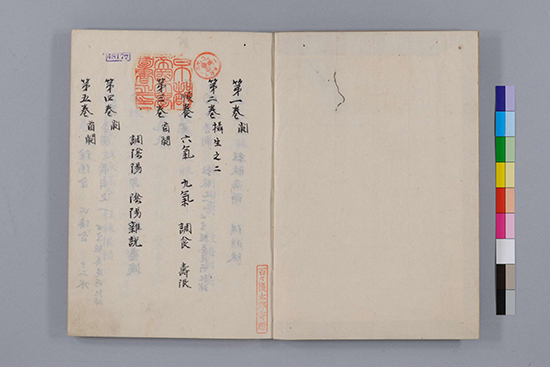 第一巻 闕
第二巻 攝生之二
六氣 九氣 調食 壽限
第三巻 首闕
調陰陽 陰陽雜説
第四巻 闕
第五巻 首闕
48177